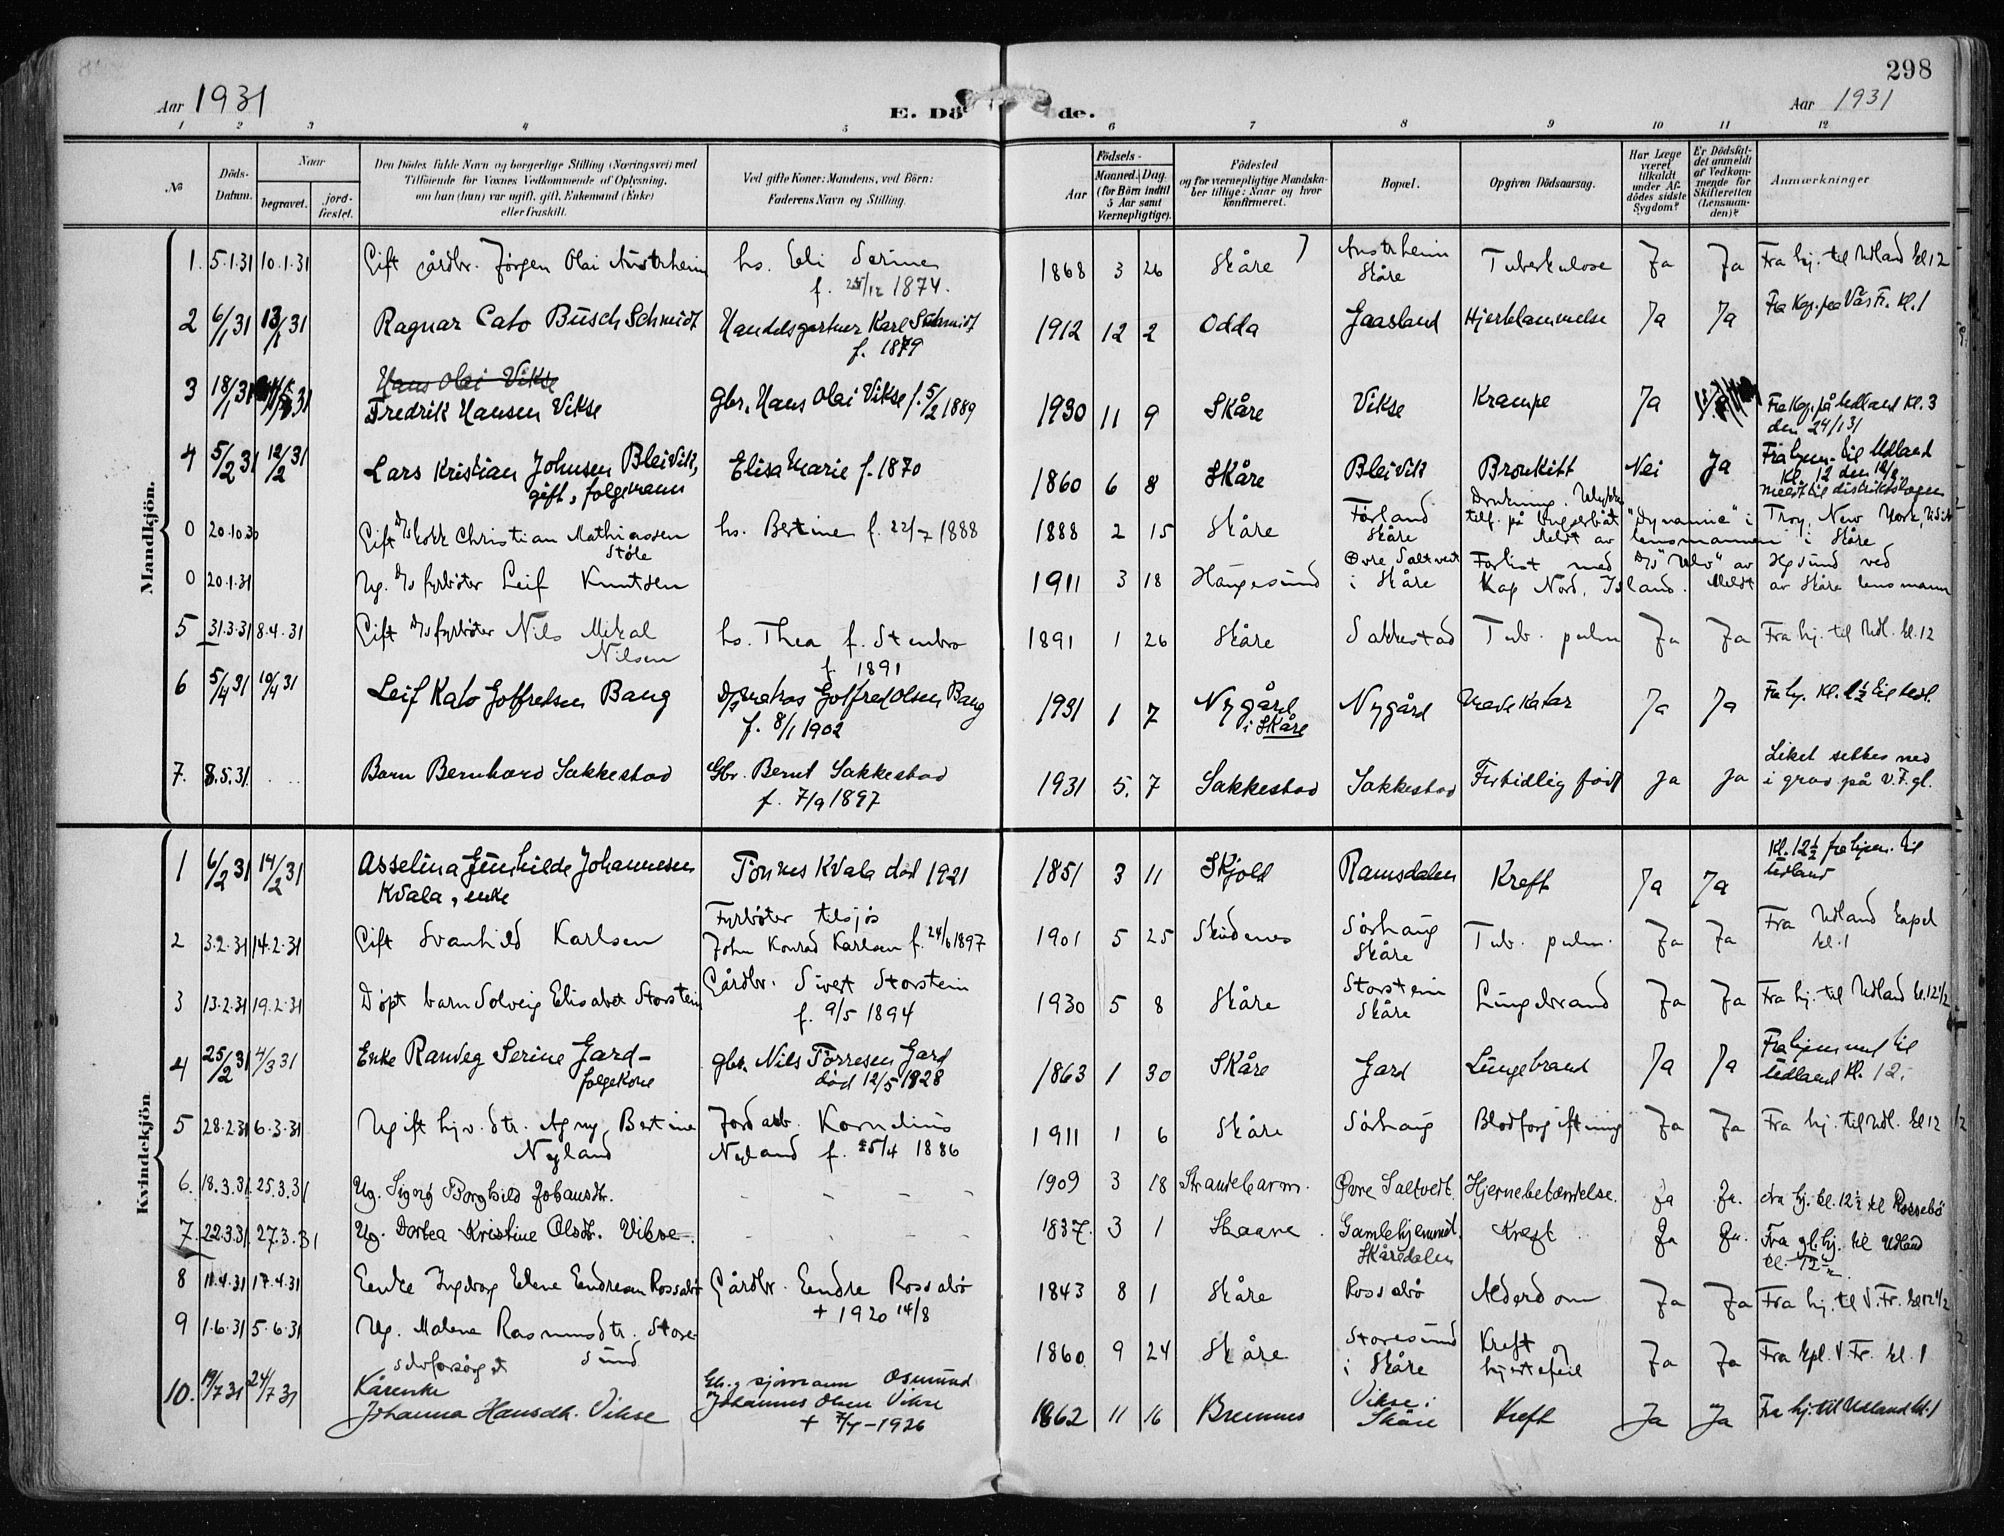 298
Aar 1931
E. Dö de.
Aar 1931
1 2 3 4 5 6 7 8 9 10 11 12
No
Döds-Datum.
Naar
begravet.
jord-fæstet.
Den Dödes fulde Navn og borgerlige Stilling (Næringsvei) med
Tilföiende for Voxnes Vedkommende af Oplysning,
om han (hun) var ugift, gift, Enkemand (Enke)
eller fraskilt.
Ved gifte Koner: Mandens, ved Börn:
Faderens Navn og Stilling.
Födsels-
Aar
Maaned. Dag.
(for Börn indtil
5 Aar samt
Værnepligtige).
Födested
og for værnepligtige Mandskaber tillige: Naar og hvor
konfirmeret.
Bopæl.
Opgiven Dödsaarsag.
Har Læge
været
tilkaldt
under Afdödes sidste
Sygdom?
Er Dödsfaldet anmeldt
af Vedkommende for
Skifteretten
(Lensmanden)?
Anmærkninger
Mandkjön.
1. 5.1.31 10.1.31 Gift gårdbr. Jørgen Olai Austrheim hs. Eli Serine f. 1874. 1868 3 26 Skåre Austrheim Skåre Tuberkulose Ja Ja Fra hj. til Udland kl 12
2 6/1 31 13/1 31 Ragnar Cato Busch Schmidt Handelsgartner Karl Schmidt f. 1879 1912 12 2 Odda Gaasland Ja Ja Fra Kap. paa Vår Fr. Kl. 1
3 18/1 31 31 Hans Olai Vikse
Fredrik Hansen Vikse gbr. Hans Olai Vikse f. 5/2 1889 1930 11 9 Skåre Vikse Krampe Ja Fra Kap. på Udland Kl. 3
den 24/1 31
4 5/2 31 12/2 31 Lars Kristian Johnsen Bleivik,
gift, folgemann Elisa Marie f. 1870 1860 6 8 Skåre Bleivik Bronkitt Nei Ja Fra hjem. til Udland
Kl. 12 den 12/2
meldt til distriktslegen
0 20.10.30 Gift D/s kokk Christian Mathiassen
Støle hs. Bertine f. 22/7 1888 1888 2 15 Skåre Førland
Skåre Drukning. Ulykkes
tilf. på "Dynamic" i Troy, New York, U.S.A.
Meldt av lensmannen i Skåre
0 20.1.31 Ug. D/s fyrbøter Leif Knutsen 1911 3 18 Haugesund Øvre Saltveit
i Skåre Forlist med D/s "Ulv" av Hgsund ved
Kap Nord, Island. Meldt av Skåre lensmann
5 31.3.31 8.4.31 Gift D/s fyrbøter Nils Mikal
Nilsen hs. Thea f. Stenbro
f. 1891 1891 1 26 Skåre Sakkestad Tub. pulm Ja Ja Fra hj. til Udl. kl. 12
6 5/4 31 10/4 31 Leif Kato Gotfredsen Bang D/s matros Gotfred Olsen Bang
f. 8/1 1902 1931 1 7 Nygård
i Skåre Nygård Mavekatar Ja Ja
7. 8.5.31 Barn Bernhard Sakkestad Gbr. Bernt Sakkestad
f. 7/9 1897 1931 5. 7 Sakkestad Sakkestad Fortidlig født Ja Ja Liket settes ned
i grav på V.F.gl.
Kvindekjön
1 6/2 31 14/2 31 Asselina Gunhilde Johannesen
Kvala, enke Tönnes Kvala död 1921 1851 3 11 Skjold Ramsdalen Kreft Ja Ja Kl. 12½ fra hjem. til
Udland
2 3.2.31 14.2.31 Gift Svanhild Karlsen Fyrbøter tilsjøs
John Konrad Karlsen f. 24/6 1897 1901 5 25 Skudenes Sørhaug
Skåre Tub. pulm. Ja Ja Fra Udland kapel
kl. 1
3 13.2.31 19.2.31 Døpt barn Solveig Elisabet Storstein Gårdbr. Sivert Storstein
f. 9/5 1894 1930 5 8 Skåre Storstein
Skåre Lungebrand Ja Ja Fra hj. til Udland kl. 12 1/2
4 25/2 31 4/3 31 Enke Randeg Serine Gard -
folgekone gbr. Nils Törresen Gard
död 12/5 1928 1863 1 30 Skåre Gard Lungebrand Ja Ja Fra hjemmet til
Udland Kl. 12.
5 28.2.31 6.3.31 Ugift hjv. dtr. Agny Bertine
Nyland Jordarb. Kornelius
Nyland f. 25/4 1886 1911 1 6 Skåre Sørhaug Blodforgiftning Ja Ja Fra hj. til Udl. kl 12
6. 18.3.31. 25.3.31 Ug. Signy Borghild Johansdtr. - - - - 1909 3 18 Strandebarm. Øvre Saltvedt. Hjernebetændelse. Ja Ja. Fra hj. kl. 12½ til Rossebö
7. 22.3.31. 27.3.31 Ug. Dortea Kristine Olsdtr. Vikse. - - - - 1837. 3 1 Skaare Gamlehjemmet.
Skåredalen Kreft Ja Ja. Fra gl.hj. til Udland
kl. 12½
8 11.4.31 17.4.31 Enke Ingeborg Elene Endresen Rossabø Gårdbr. Endre Rossabø
+ 1920 14/8 1843 8 1 Skåre Rossabø Alderdom Ja Ja Fra hj. til V. Fr. kl 12 1/2
9 1.6.31 5.6.31 Ug. Malene Rasmusdtr. Storesund
selvforsørget 1860 9 24 Skåre Storesund
i Skåre Kreft og
hjertefeil Ja Ja Fra kpl. V. Fr. kl. 1
10. 19/7 31 24/7 31 Kårenke
Johanna Hansdtr. Vikse sjømann Osmund
Johannes Olsen Vikse
+ 7/4 - 1926 1862 11 16 Bremnes Vikse i
Skåre Kreft Ja Ja Fra hj. til Udland kl. 1